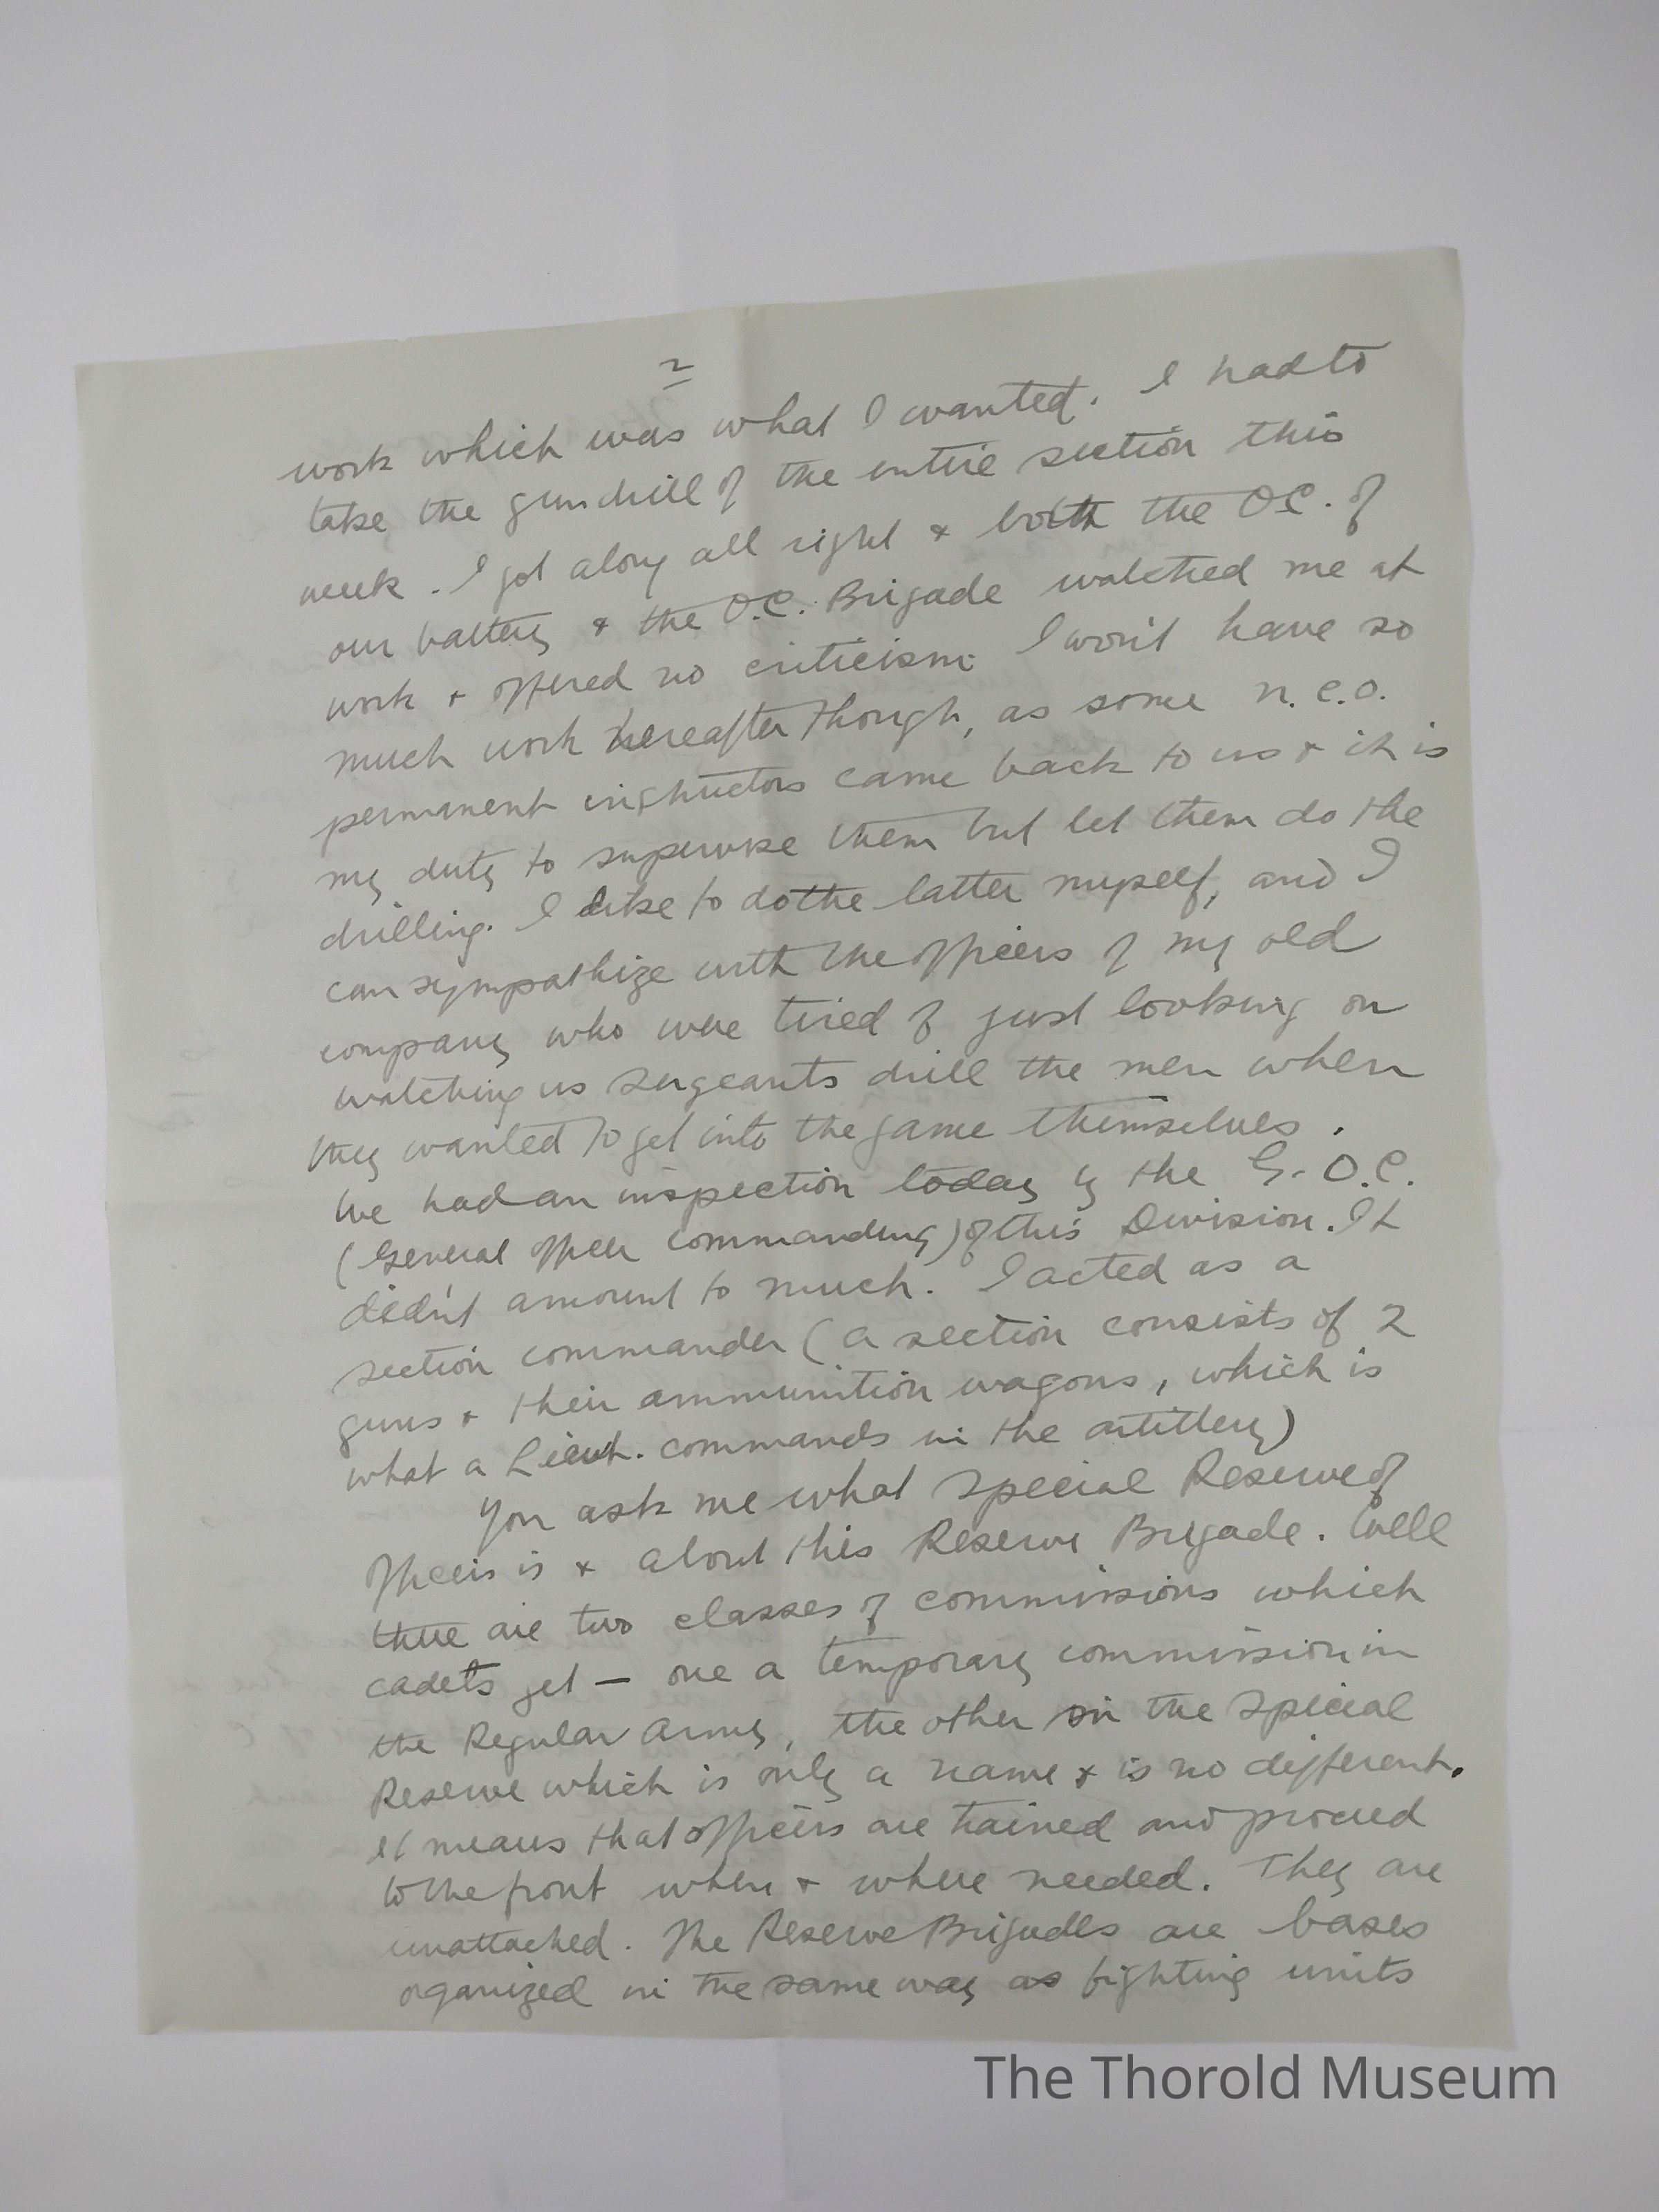 2
work which was what I wanted. I had to
take the gun drill of the entire section this
week. I got along all right & both the O.C. of
our battery & the O.C. Brigade watched me at
work & offered no criticism. I won't have so
much work hereafter though, as some N.C.O.
permanent instructors came back to us & it is
my duty to supervise them but let them do the
drilling. I like to do the latter myself, and I
can sympathize with the officers of my old
company who were tired of just looking on
watching us sergeants drill the men when
they wanted to get into the game themselves.
We had an inspection today by the G.O.C.
(General Officer Commanding) of this Division. It
didn't amount to much. I acted as a
section commander (a section consists of 2
guns & their ammunition wagons, which is
what a Lieut. commands in the artillery)
You ask me what Special Reserve of
Officers is & about this Reserve Brigade. Well
there are two classes of commissions which
cadets get — one a temporary commission in
the Regular Army, the other in the Special
Reserve which is only a name & is no different.
It means that officers are trained and proceed
to the front when & where needed. They are
unattached. The Reserve Brigades are bases
organized in the same way as fighting units
The Thorold Museum